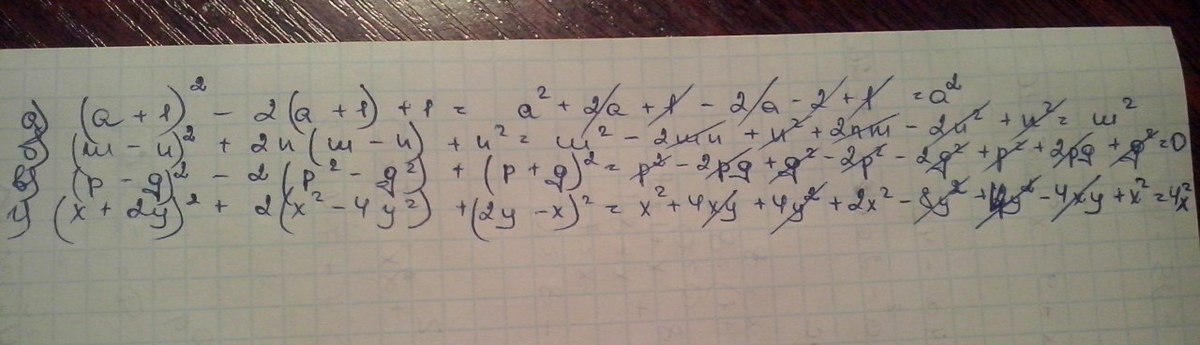 а) (a + 1)² - 2(a + 1) + 1 = a² + 2a + 1 - 2a - 2 + 1 = a²
б) (m - n)² + 2n(m - n) + n² = m² - 2mn + n² + 2nm - 2n² + n² = m²
в) (p - q)² - 2(p² - q²) + (p + q)² = p² - 2pq + q² - 2p² - 2q² + p² + 2pq + q² = 0
г) (x + 2y)² + 2(x² - 4y²) + (2y - x)² = x² + 4xy + 4y² + 2x² - 8y² + 4y² - 4xy + x² = 4x²